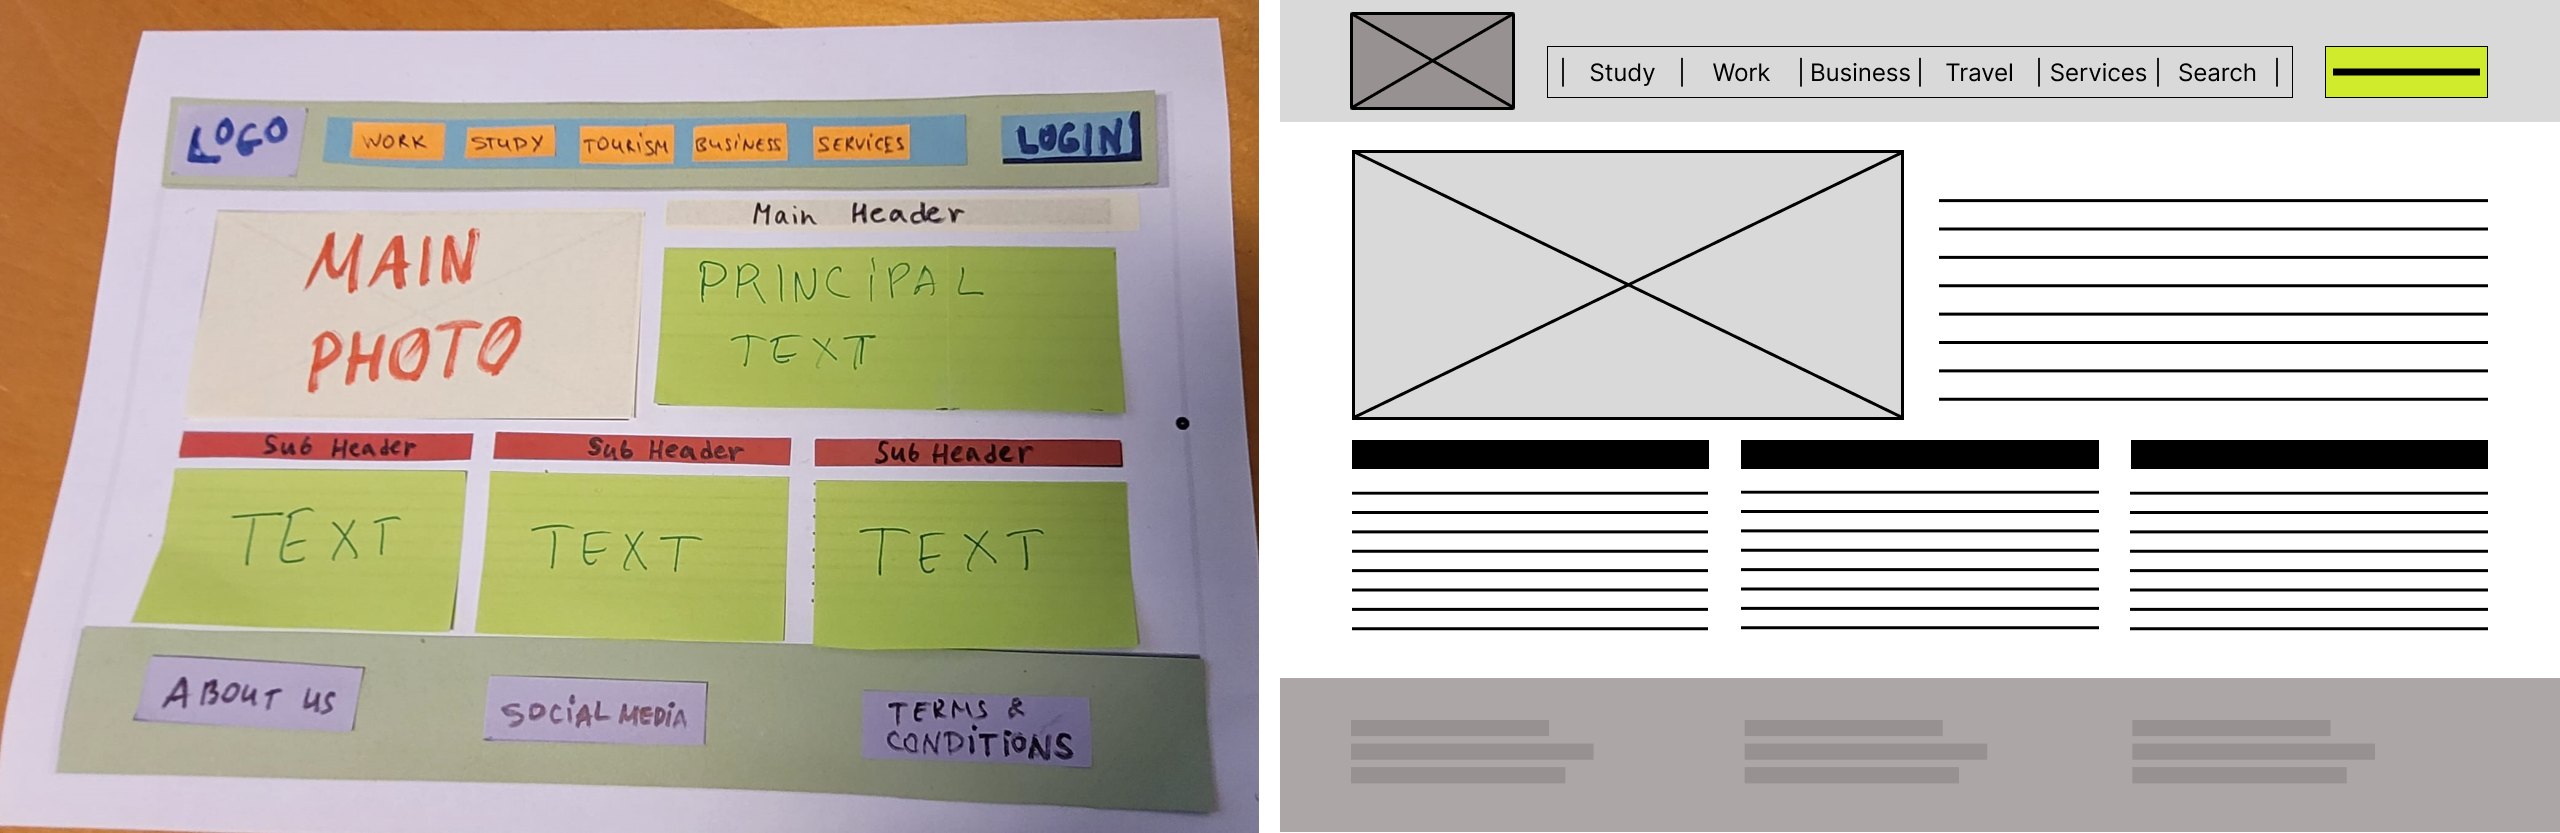 LOGO
WORK
STUDY
TOURISM
BUSINESS
SERVICES
LOGIN
MAIN
PHOTO
Main Header
PRINCIPAL
TEXT
Sub Header
Sub Header
Sub Header
TEXT
TEXT
TEXT
ABOUT US
SOCIAL MEDIA
TERMS &
CONDITIONS
Study
Work
Business
Travel
Services
Search